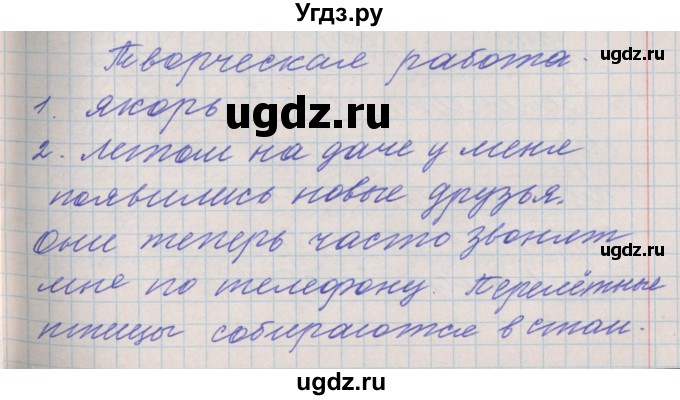 Угдз.ру
Творческая работа.
1. якорь
ugdz.ru
2. Летом на даче у меня
появились новые друзья.
Они теперь часто звонят
мне по телефону. Перелётные
птицы собираются в стаи.
ugdz.ru
ugdz.ru
ugdz.ru
ugdz.ru
ugdz.ru
ugdz.ru